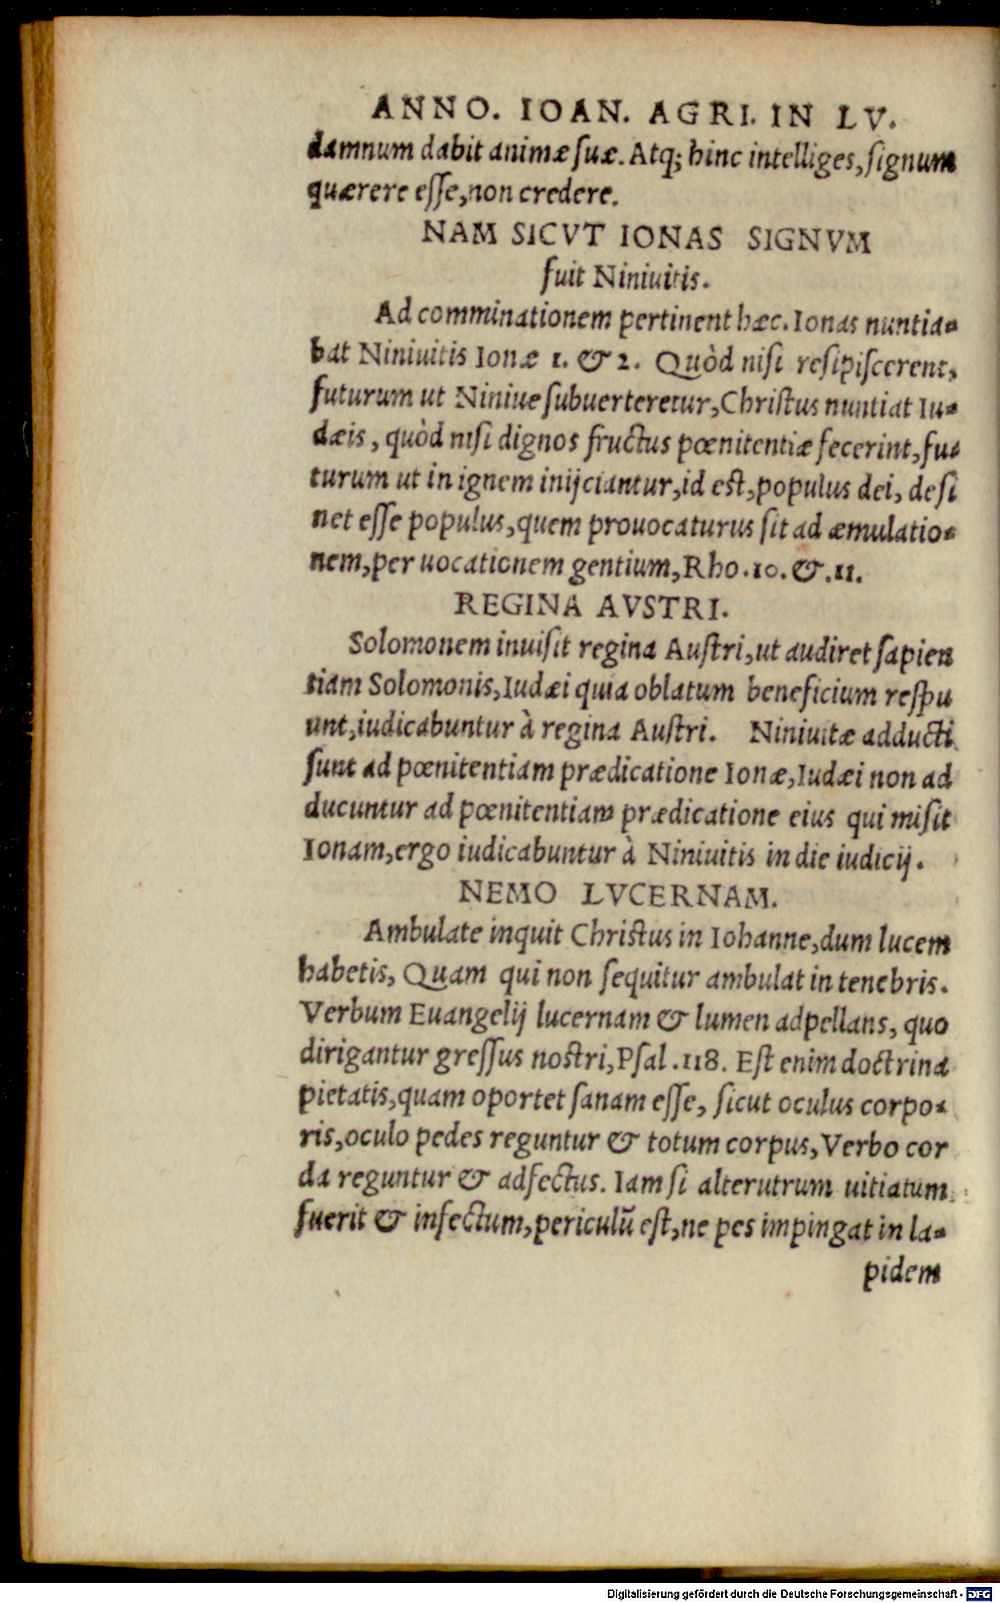 ANNO. IOAN. AGRI. IN LV.
damnum dabit animæ ſuæ. Atq; hinc intelliges, ſignum
quærere eſſe, non credere.
NAM SICVT IONAS SIGNVM
fuit Niniuitis.
Ad comminationem pertinent hæc. Ionas nuntia-
bat Niniuitis Ionæ 1. & 2. Quòd niſi reſipiſcerent,
futurum ut Niniue ſubuerteretur, Chriſtus nuntiat Iu-
dæis, quòd niſi dignos fructus pœnitentiæ fecerint, fu-
turum ut in ignem inijciantur, id eſt, populus dei, deſi
net eſſe populus, quem prouocaturus ſit ad æmulatio-
nem, per uocationem gentium, Rho. 10. &. 11.
REGINA AVSTRI.
Solomonem inuiſit regina Auſtri, ut audiret ſapien
tiam Solomonis, Iudæi quia oblatum beneficium reſpu
unt, iudicabuntur à regina Auſtri. Niniuitæ adducti
ſunt ad pœnitentiam prædicatione Ionæ, Iudæi non ad
ducuntur ad pœnitentiam prædicatione eius qui miſit
Ionam, ergo iudicabuntur à Niniuitis in die iudicij.
NEMO LVCERNAM.
Ambulate inquit Chriſtus in Iohanne, dum lucem
habetis, Quam qui non ſequitur ambulat in tenebris.
Verbum Euangelij lucernam & lumen adpellans, quo
dirigantur greſſus noſtri, Pſal. 118. Eſt enim doctrina
pietatis, quam oportet ſanam eſſe, ſicut oculus corpo-
ris, oculo pedes reguntur & totum corpus, Verbo cor
da reguntur & adfectus. Iam ſi alterutrum uitiatum
fuerit & infectum, periculũ eſt, ne pes impingat in la-
pidem
Digitalisierung gefördert durch die Deutsche Forschungsgemeinschaft - DFG